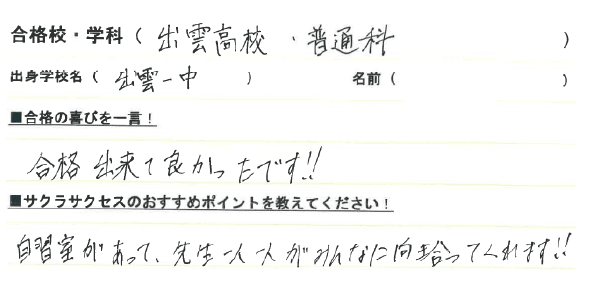 合格校・学科(出雲高校・普通科)
出身学校名(出雲一中) 名前( )
■合格の喜びを一言!
合格出来て良かったです!!
■サクラサクセスのおすすめポイントを教えてください!
自習室があって、先生一人一人がみんなに向き合ってくれます!!